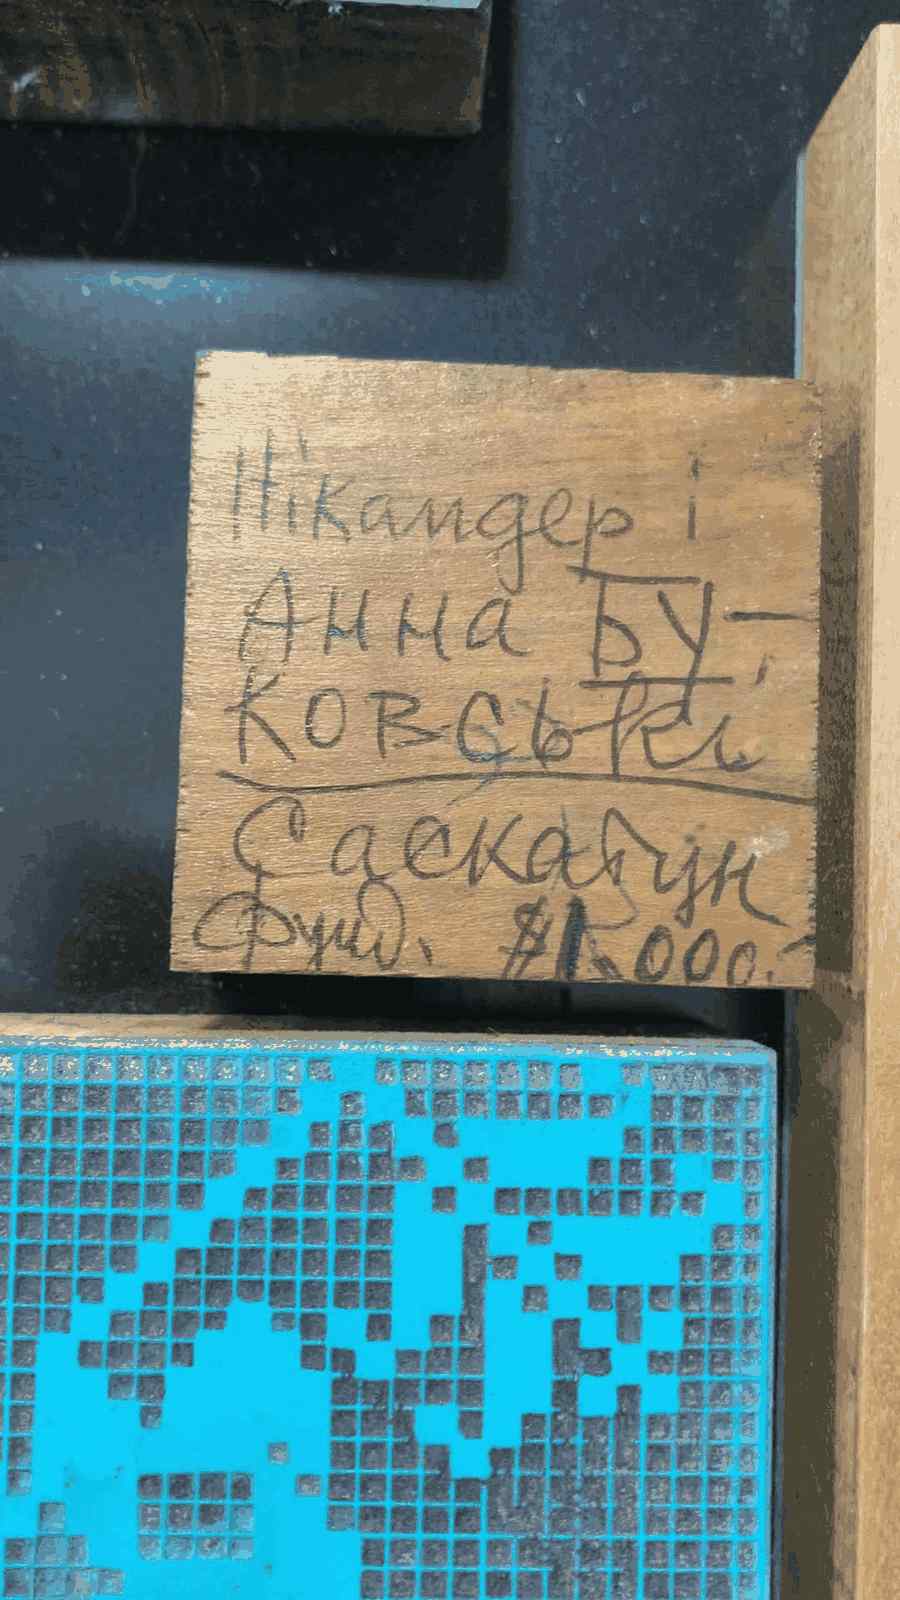 Нікандер і
Анна Бу-
ковські
Саскатун
Фунд. $1.000.